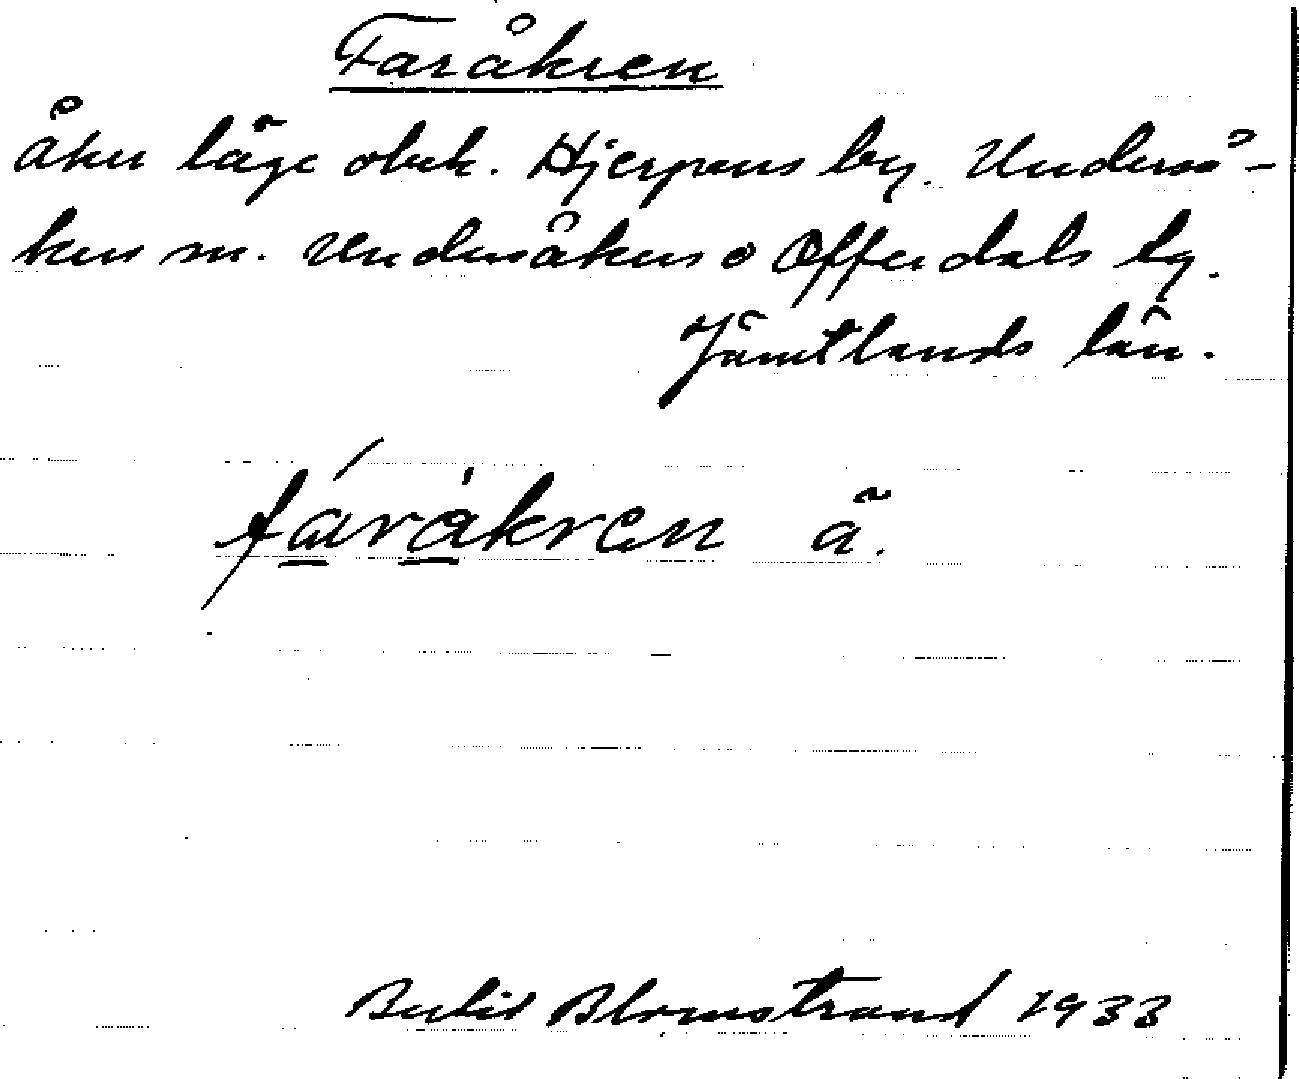 Faråkren
åker läge obek. Hjerpens by. Underså-
kers sn. Undersåkers o Offerdals tg.
Jämtlands län.
fàråkren ä.
Blomstrand 1933